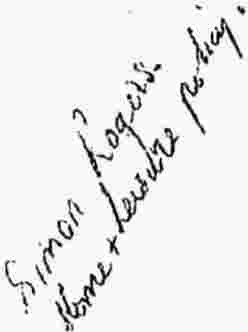 Simon Rogers.
Home + Leisure policy.